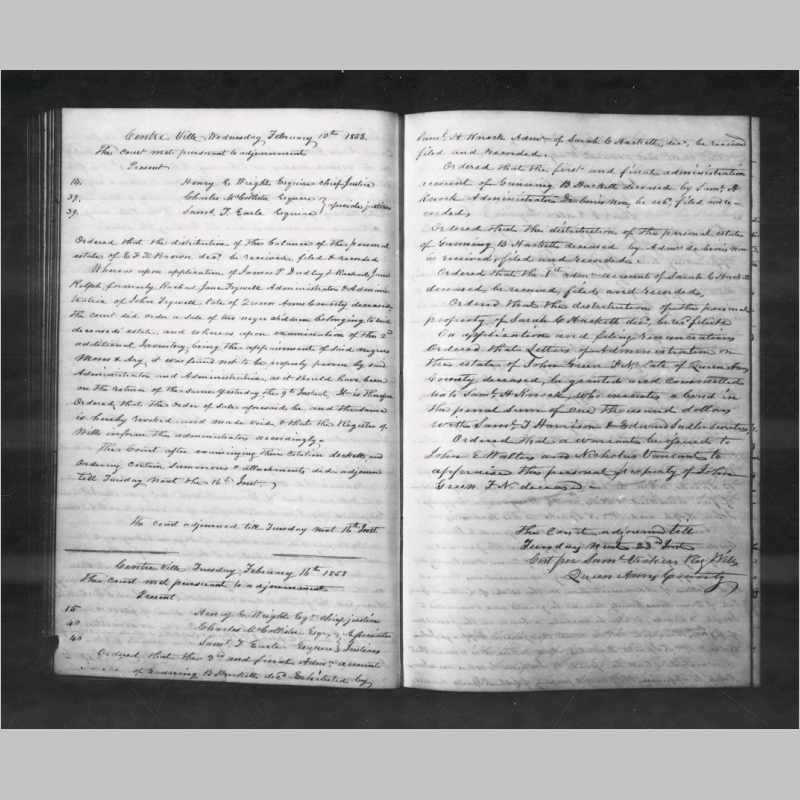 Centre Ville, Wednesday February 10th 1858.
The court met pursuant to adjournment
Present
16. Henry C. Wright Esquire chief Justice
39. Charles McCollister Esquire
39. Saml. T. Earle Esquire } associate justices
Ordered that the distribution of the balance of the personal
estate of be received, filed & recorded
Whereas upon application of James T. Dudley & Rachel Jane
Ralph formerly Rachel Jane Administrator & Adminis-
tratrix of John late of Queen Anns County deceased,
the court did order a sale of two negro children belonging to said
deceaseds estate, and whereas upon examination of the 2d
additional Inventory, being the appraisment of said negroes
Moses & it was found not to be properly proven by said
Administrator and Administratrix, as it should have been
on the return of the same Yesterday the 9th Instant. It is therefore
Ordered, that the order of sale aforesaid be, and the same
is hereby revoked and made void & that the Register of
Wills inform the administrators accordingly.
The Court after examining their citation dockett, and
Ordering certain Summons & attachments did adjourn
till Tuesday next the 16th Inst.
The court adjourned till Tuesday next 16th Inst
Centre Ville, Tuesday February 16th 1858
The Court met pursuant to adjournment
Present
15 Henry C. Wright Esqr. chief justice
40 Charles McCollister Esqr. } Associate
40 Saml. T. Earle Esquire } Justices
Ordered that the 3rd and final Admn. account
of Gunning B Hackett decd. Exhibited by
Saml. H Admr. of Sarah C Hackett, decd. be received
filed and recorded.
Ordered that the first and final administration
account of Gunning B Hackett deceased by Saml. H
Administrator De bonis non, be recd. filed and re-
corded.
Ordered that the distribution of the personal estate
of Gunning B. Hackett deceased by Admr. de bonis non
is received, filed and recorded.
Ordered that the 1st admn account of Sarah C Hackett
deceased, be received filed and recorded,
Ordered that the distribution of the personal
property of Sarah C Hackett decd.
On application and filing Renunciations
Ordered that Letters of Administration on
the estate of John Green F.N. late of Queen Anns
County deceased, be granted and committed
unto Saml. H who executes a bond in
the penal sum of One Thousand dollars
with Saml. T Harrison & Edward Sudler Securities,
Ordered that a warrant be issued to
John E Walters and Nicholas Vansant to
appraise the personal property of John
Green F.N. deceased.
The Court adjourned till
Tuesday next 23d Inst
Cert per Saml. Reg Wills
Queen Anns County